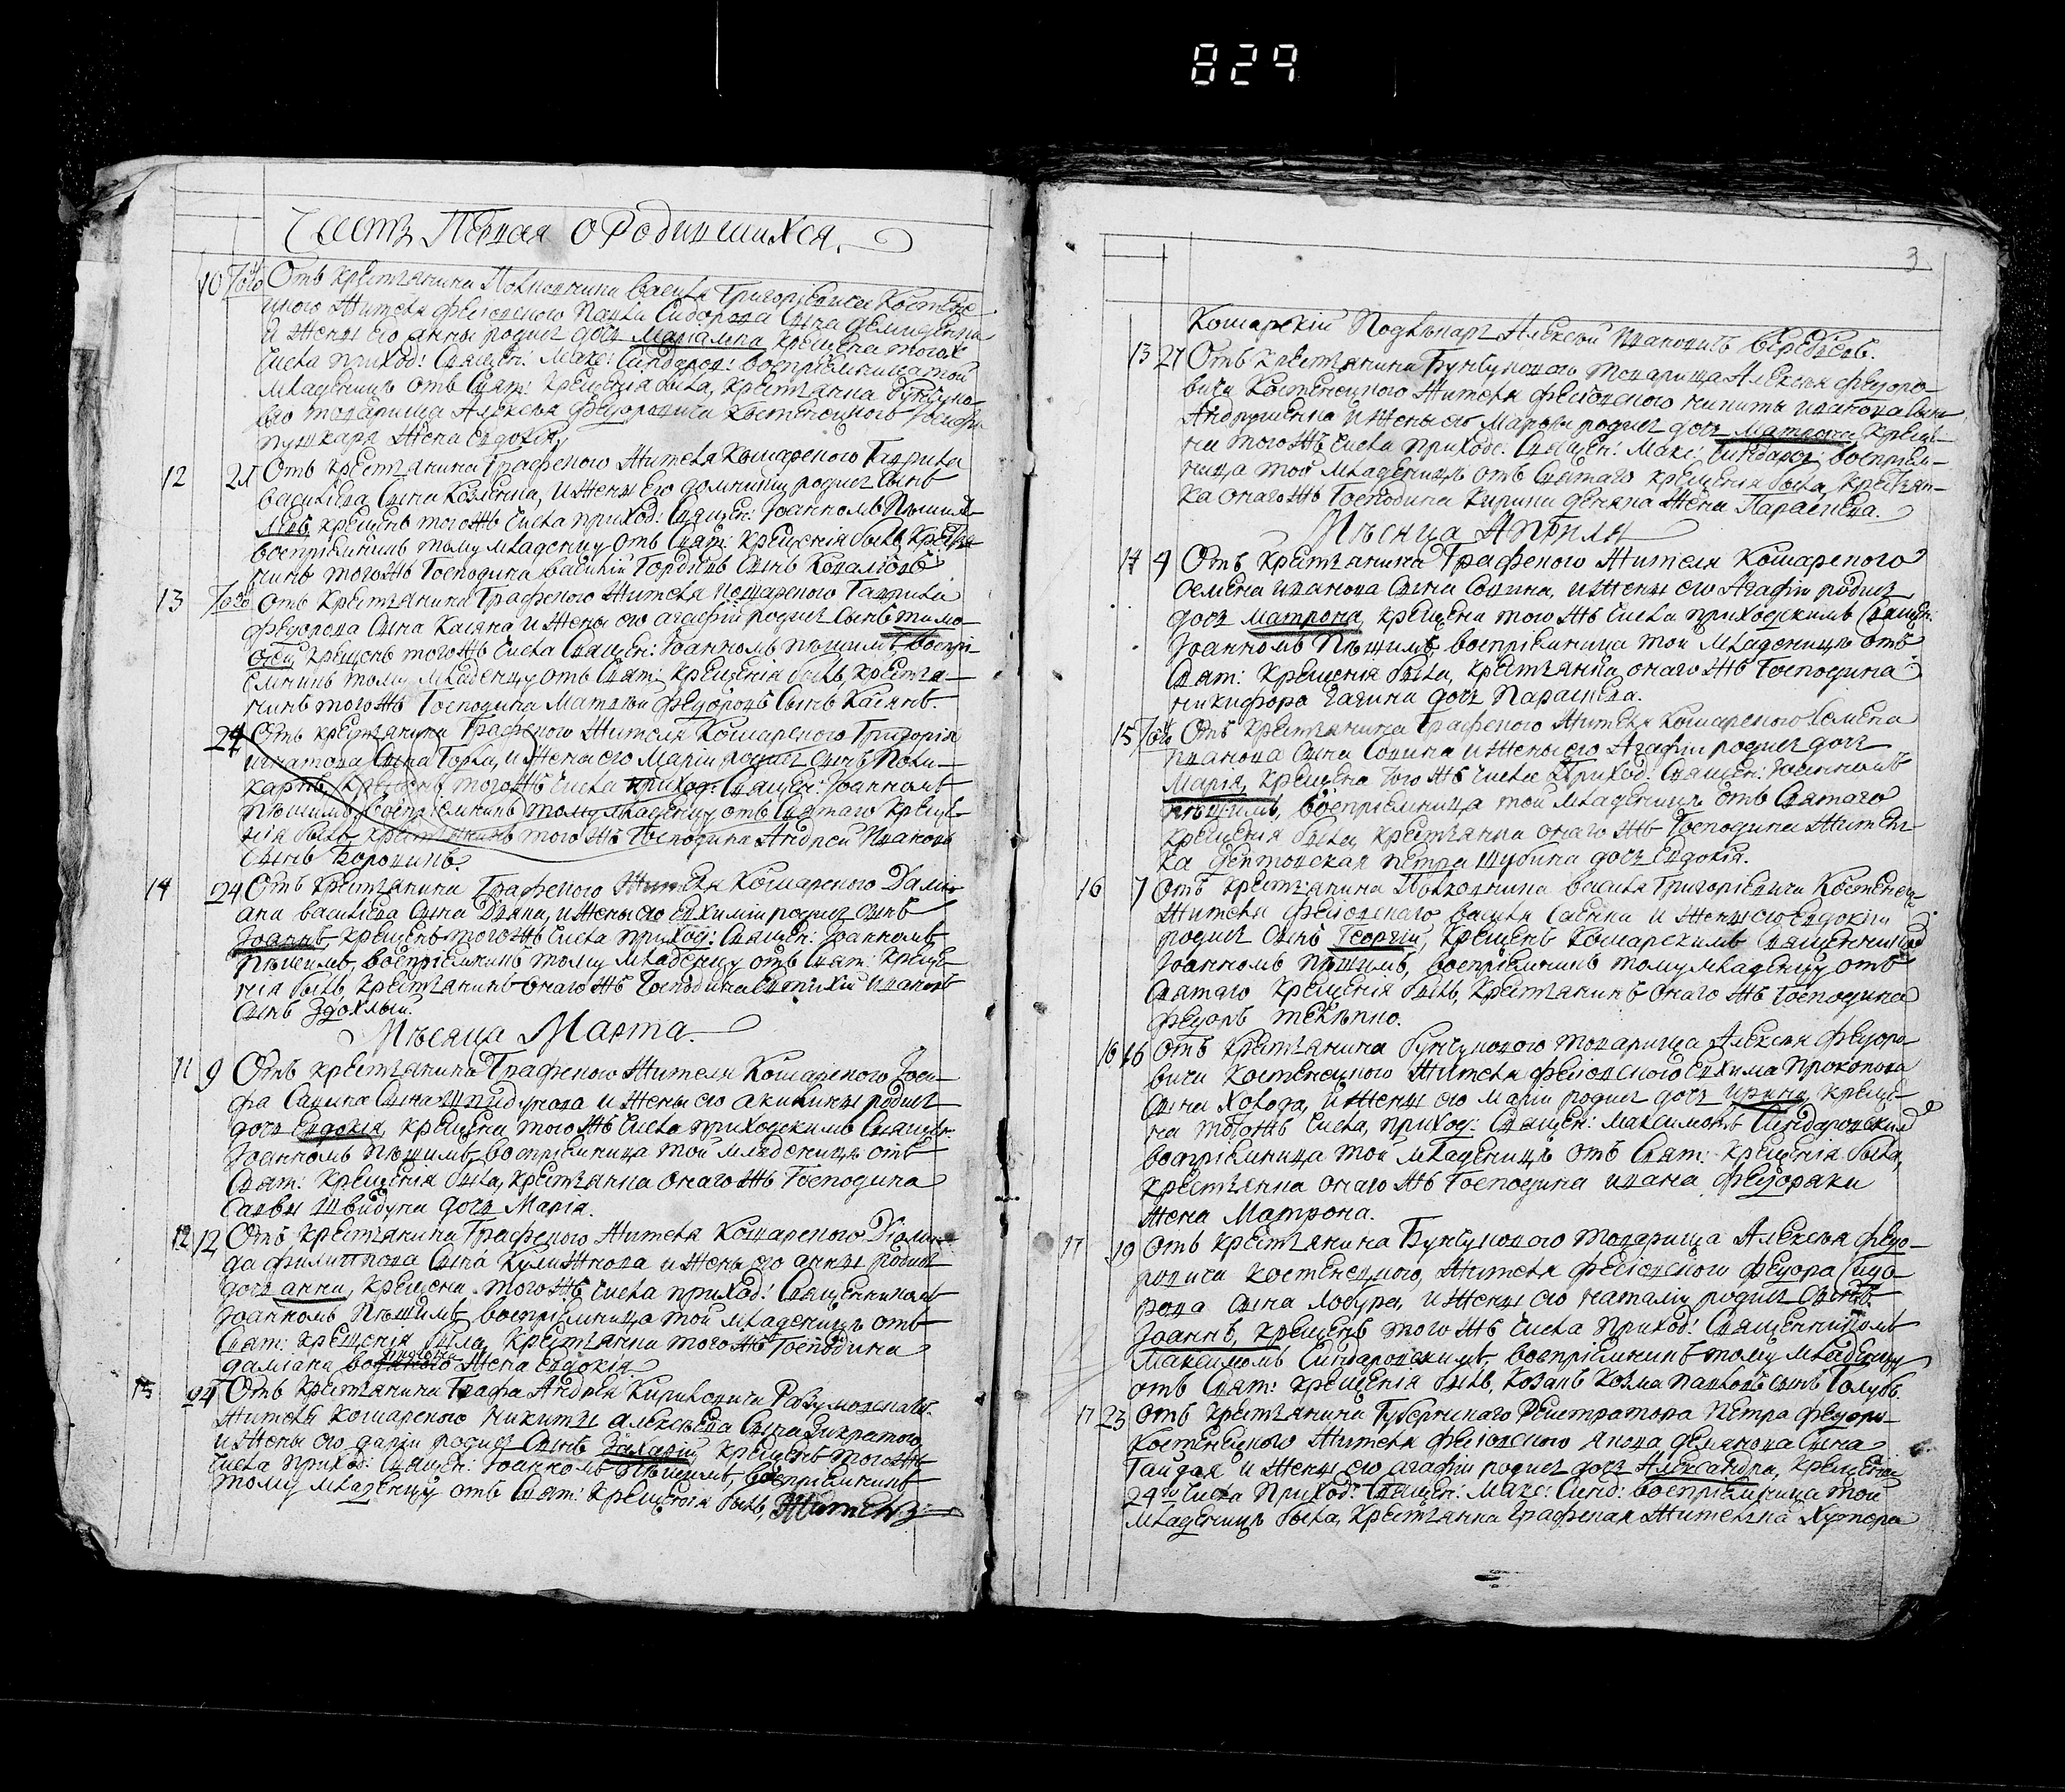 829
Часть Первая о Родившихся.
10 Того Отъ крестянина Полковника василя Григориевича Костене
цкого Жителя фесювского Павла Сидорова Сына
и Жены его анны родися дочъ Мариамна крещена того ж
числа приход: Священ: Макс: Синдаров: восприемница той
младеницѣ отъ Свят: крещения была, крестянка бунчуко
вого товарища Алексѣя Федоровича костенецкого
пушкаря Жена евдокия
12 21 Отъ крестянина Графского Жителя кошарского Гаврила
василиева Сына Козленка, и Жены его домникии родися Сынъ
крещенъ того жъ числа приход: Священ: Иоанномъ Пѣшимъ
восприемникъ тому младенцу отъ Свят: крещения былъ крестя
нинъ того жъ Господина василий Гордѣевъ Сынъ
13 Того Отъ крестянина Графского Жителя кошарского Гаврила
федорова Сына Касяна и Жены его агафии родися Сынъ тимо
фей крещенъ того жъ числа Священ: Иоанномъ пѣшимъ, воспри
емникъ тому младенцу отъ Свят: крещения былъ, крестя
нинъ того жъ Господина Матвѣй федоровъ Сынъ Касянъ.
24 Отъ крестянина Графского Жителя Кошарского Григория
игнатова Сына Горка, и Жены его Марии родися Сынъ Поли
карпъ, крещенъ того жъ числа приход: Священ: Иоанномъ
пѣшимъ восприемникъ тому младенцу отъ Святаго креще
ния былъ крестянинъ того жъ Господина Андрей Ивановъ
Сынъ
14 24 Отъ крестянина Графского Жителя Кошарского Дами
ана василиева Сына Дзяки, и Жены его евхимии родися сынъ
Иоаннъ, крещенъ того жъ числа приход: Священ: Иоанномъ
Пѣшимъ, восприемникъ тому младенцу отъ Свят: креще
ния былъ крестянинъ онаго жъ Господина евтихий ивановъ
Сынъ Здохлый.
Мѣсяца Марта
11 9 Отъ крестянина Графского Жителя Кошарского Иоси
фа Савина Сына и Жены его акилины родися
дочъ Евдокия, крещена того жъ числа приходскимъ Священ:
Иоанномъ пѣшимъ, восприемница той младеницѣ отъ
Свят: крещения была, крестянка онаго жъ Господина
Савы дочъ Мария.
12 12 Отъ крестянина Графского Жителя Кошарского Диоми
да филиппова Сына и Жены его анны родися
дочъ анна, крещена того жъ числа приход: Священникомъ
Иоанномъ пѣшимъ восприемница той младеницѣ отъ
Свят: крещения была, крестянка того жъ Господина
дамиана Жена евдокия
13 24 Отъ крестянина Графа Андрея Кириловича Разумовскаго
Жителя кошарского никиты алексѣева Сына
и Жены его дарии родися Сынъ Захарий, крещенъ того жъ
числа приход: Священ: Иоанномъ пѣшимъ, восприемникъ
тому младенцу отъ Свят: крещения былъ, Житель
3
Кошарский Подѣкарь Алексѣй Ивановичъ
13 27 Отъ крестянина бунчукового товарища Алексѣя федоро
вича Костенецкого Жителя фесювского никиты иванова Сына
Андрушенка и Жены его Марфы родися дочъ Матрона креще
на того жъ числа приходс: Священ: Макс: Синдаров: восприем
ница той младеницѣ отъ Святаго крещения была, крестян
ка онаго жъ Господина Жена Параскева.
Мѣсяца Априля
14 4 Отъ крестянина Графского Жителя Кошарского
Семена иванова Сына Совина, и Жены его Агафии родися
дочъ Матрона, крещена того жъ числа приходскимъ Священ:
Иоанномъ Пѣшимъ, восприемница той младеницѣ отъ
Свят: крещения была, крестянка онаго жъ Господина
никифора дочъ Параскева.
15 Того Отъ крестянина Графского Жителя Кошарского Семена
иванова Сына Совина и Жены его Агафии родися дочъ
Мария, крещена того жъ числа Приход: Священ: Иоанномъ
пѣшимъ, восприемница той младеницѣ отъ Святаго
крещения была, крестянка онаго жъ Господина Житель
ка Петра шубина дочъ евдокия.
16 7 Отъ крестянина Полковника василя Григориевича Костенец:
Жителя фесювскаго василя Саенка и Жены его евдокии
родися Сынъ Георгий, крещенъ Кошарскимъ Священникомъ
Иоанномъ Пѣшимъ, восприемникъ тому младенцу отъ
Святаго крещения былъ, крестянинъ онаго жъ Господина
федоръ
16 16 Отъ крестянина бунчукового товарища Алексѣя федоро
вича костенецкого Жителя фесювского евхима прокопова
Сына холода, и Жены его Марии родися дочъ ирина, креще
на того жъ числа, приход: Священ: Максимомъ Синдаровским
восприемница той младеницѣ отъ Свят: крещения была,
крестянка онаго жъ Господина ивана федоряки
Жена Матрона.
17 19 Отъ крестянина Бунчукового товарища Алексѣя федо
ровича костенецкого, Жителя фесювского федора Сидо
рова Сына лобура, и Жены его наталии родися Сынъ
Иоаннъ, крещенъ того жъ числа приход: Священникомъ
Максимомъ Синдаровскимъ, восприемникъ тому младенцу
отъ Свят: крещения былъ, козакъ козма павловъ сынъ Голубъ.
17 23 Отъ крестянина Губернскаго Регистратора Петра федоро
Костенецкого Жителя фесювского якова демянова Сына
Гайдая и Жены его агафии родися дочъ Александра, крещена
24го числа Приход: Священ: Макс: Синд: восприемница той
младеницѣ была, крестянка Графская Жителка Хутора